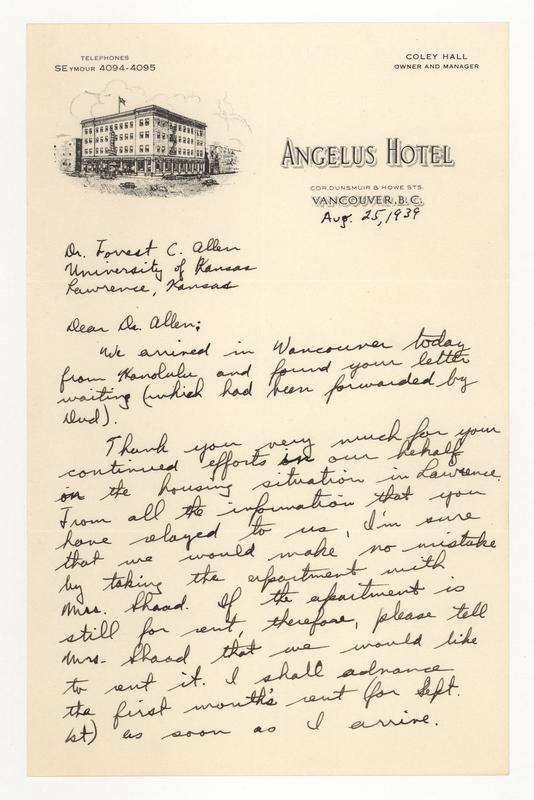 TELEPHONES
SEYMOUR 4094-4095
COLEY HALL
OWNER AND MANAGER
ANGELUS HOTEL
COR. DUNSMUIR & HOWE STS.
VANCOUVER, B.C.
Aug. 25, 1939
Dr. Forrest C. Allen
University of Kansas
Lawrence, Kansas
Dear Dr. Allen;
We arrived in Vancouver today
from Honolulu and found your letter
waiting (which had been forwarded by
Dud).
Thank you very much for your
continued efforts in our behalf
on the housing situation in Lawrence.
From all the information that you
have relayed to us, I'm sure
that we would make no mistake
by taking the apartment with
Mrs. Shaad. If the apartment is
still for rent, therefore, please tell
Mrs. Shaad that we would like
to rent it. I shall advance
the first month's rent (for Sept.
1st) as soon as I arrive.